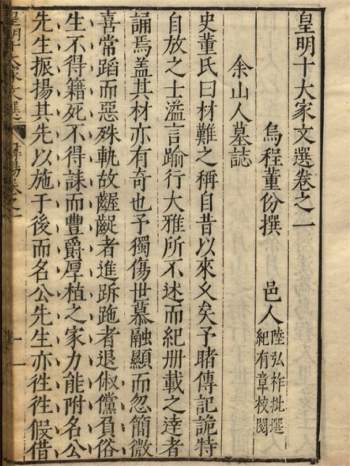 皇明十大家文選卷之一
烏程董份撰
邑人
陸弘祚批選
紀有章校閱
余山人墓誌
史董氏曰材難之稱自昔以來久矣予睹傳記詭特
自放之士溢言踰行大雅所不述而紀冊載之達者
誦焉蓋其材亦有奇也予獨傷世慕融顯而忽簡微
喜常蹈而惡殊軌故齷齪者進跅跎者退俶儻負俗
生不得籍死不得誄而豐爵厚植之家力能附名公
先生振揚其先以施于後而名公先生亦徃徃假借
皇明十大家文選
卷之一